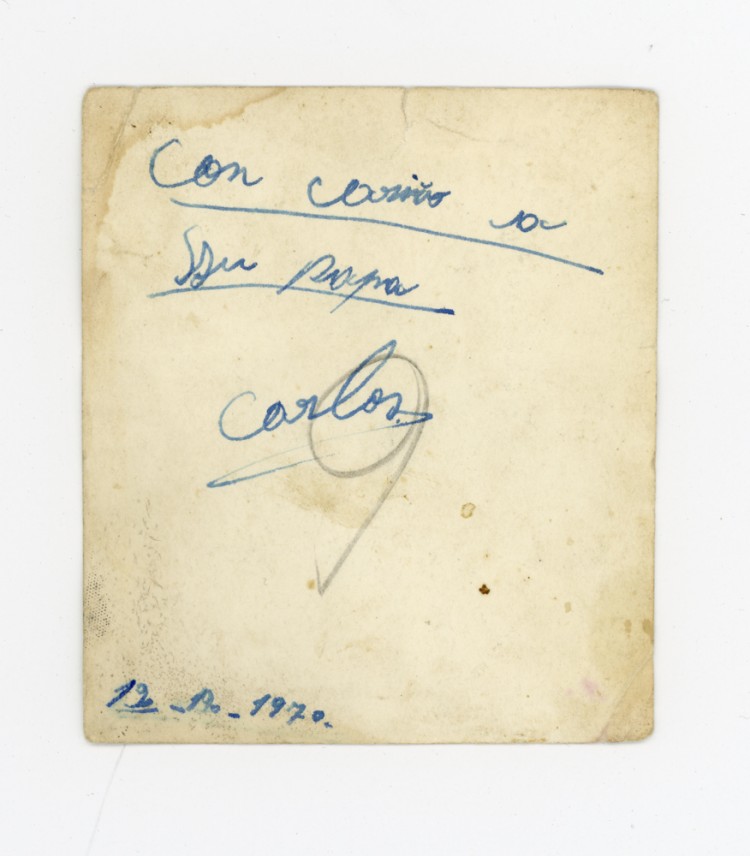 Con cariño a
Su papa
Carlos
9
1970.